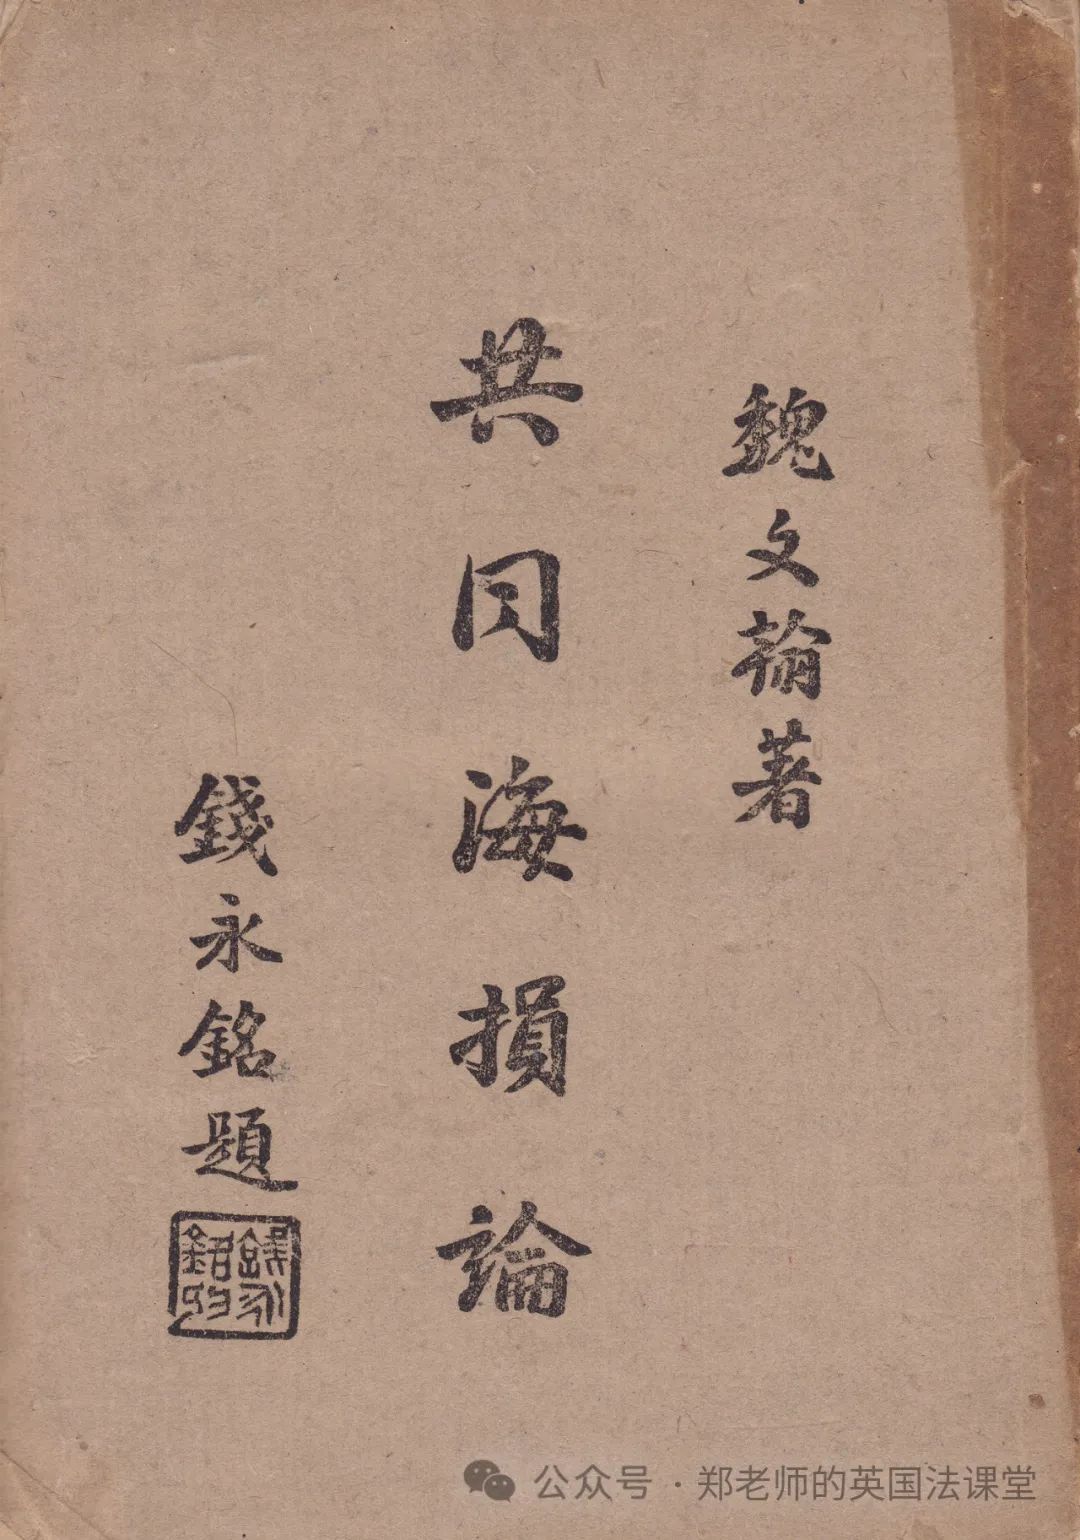 魏文翰著
共同海損論
錢永銘題
公众号·郑老师的英国法课堂